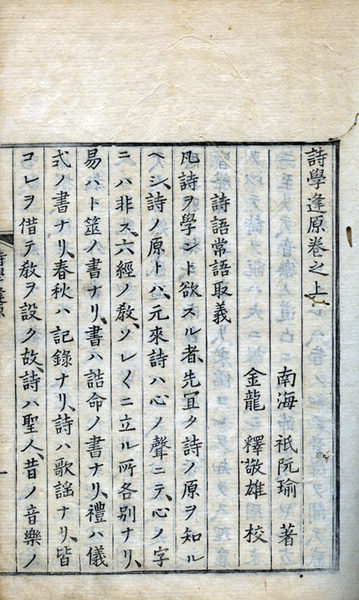 詩學逢原卷之上
南海 祇阮瑜 著
金龍 釋敬雄 校
詩語常語取義
凡詩ヲ學ント欲スル者、先冝ク詩ノ原ヲ知ル
ヘシ、詩ノ原トハ、元來詩ハ心ノ聲ニテ、心ノ字
ニハ非ス、六經ノ敎、ソレ〱ニ立ル所各別ナリ、
易ハト筮ノ書ナリ、書ハ誥命ノ書ナリ、禮ハ儀
式ノ書ナリ、春秋ハ記錄ナリ、詩ハ歌謡ナリ、皆
コレヲ借テ敎ヲ設ク、故ニ詩ハ聖人、昔ノ音樂ノ